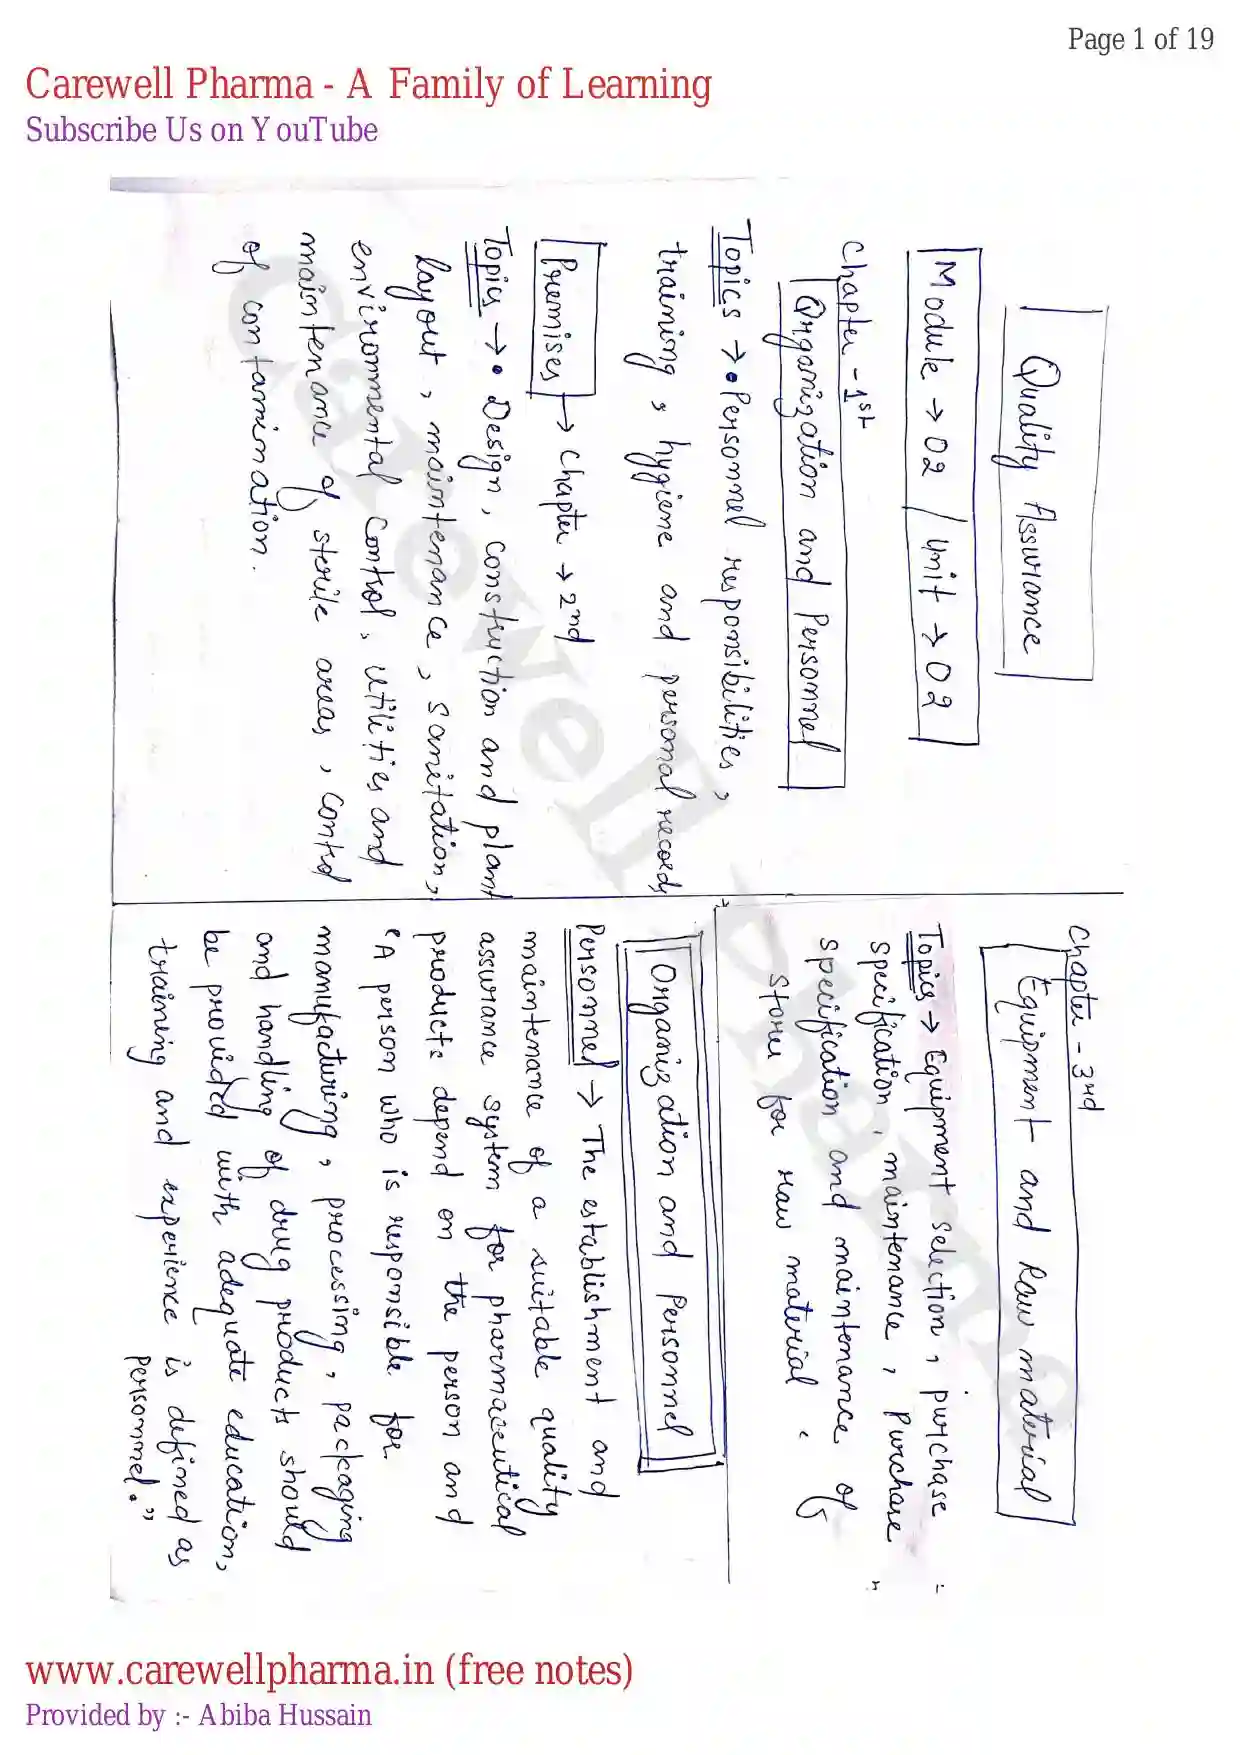 Page 1 of 19
Carewell Pharma - A Family of Learning
Subscribe Us on YouTube
Quality Assurance
Module → 02 / Unit → 02
Chapter - 1st
Organization and Personnel
Topics → • Personnel responsibilities,
training, hygiene and personal records
Premises → Chapter → 2nd
Topics → • Design, construction and plant
layout, maintenance, sanitation,
environmental control, utilities and
maintenance of sterile areas, control
of contamination.
Chapter - 3rd
Equipment and Raw material
Topics → Equipment selection, purchase
specification, maintenance, Purchase
specification and maintenance of
store for raw material.
Organization and Personnel
Personnel → The establishment and
maintenance of a suitable quality
assurance system for pharmaceutical
products depend on the person and
"A person who is responsible for
manufacturing, processing, packaging
and handling of drug products should
be provided with adequate education,
training and experience is defined as
personnel."
Carewell Pharma
www.carewellpharma.in (free notes)
Provided by :- Abiba Hussain